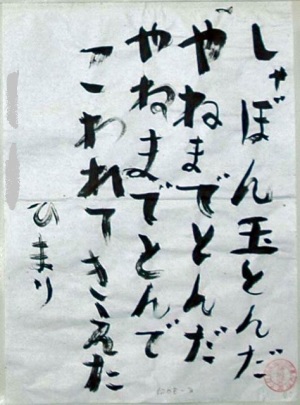 しゃぼん玉とんだ
やねまでとんだ
やねまでとんで
こわれてきえた
ひまり